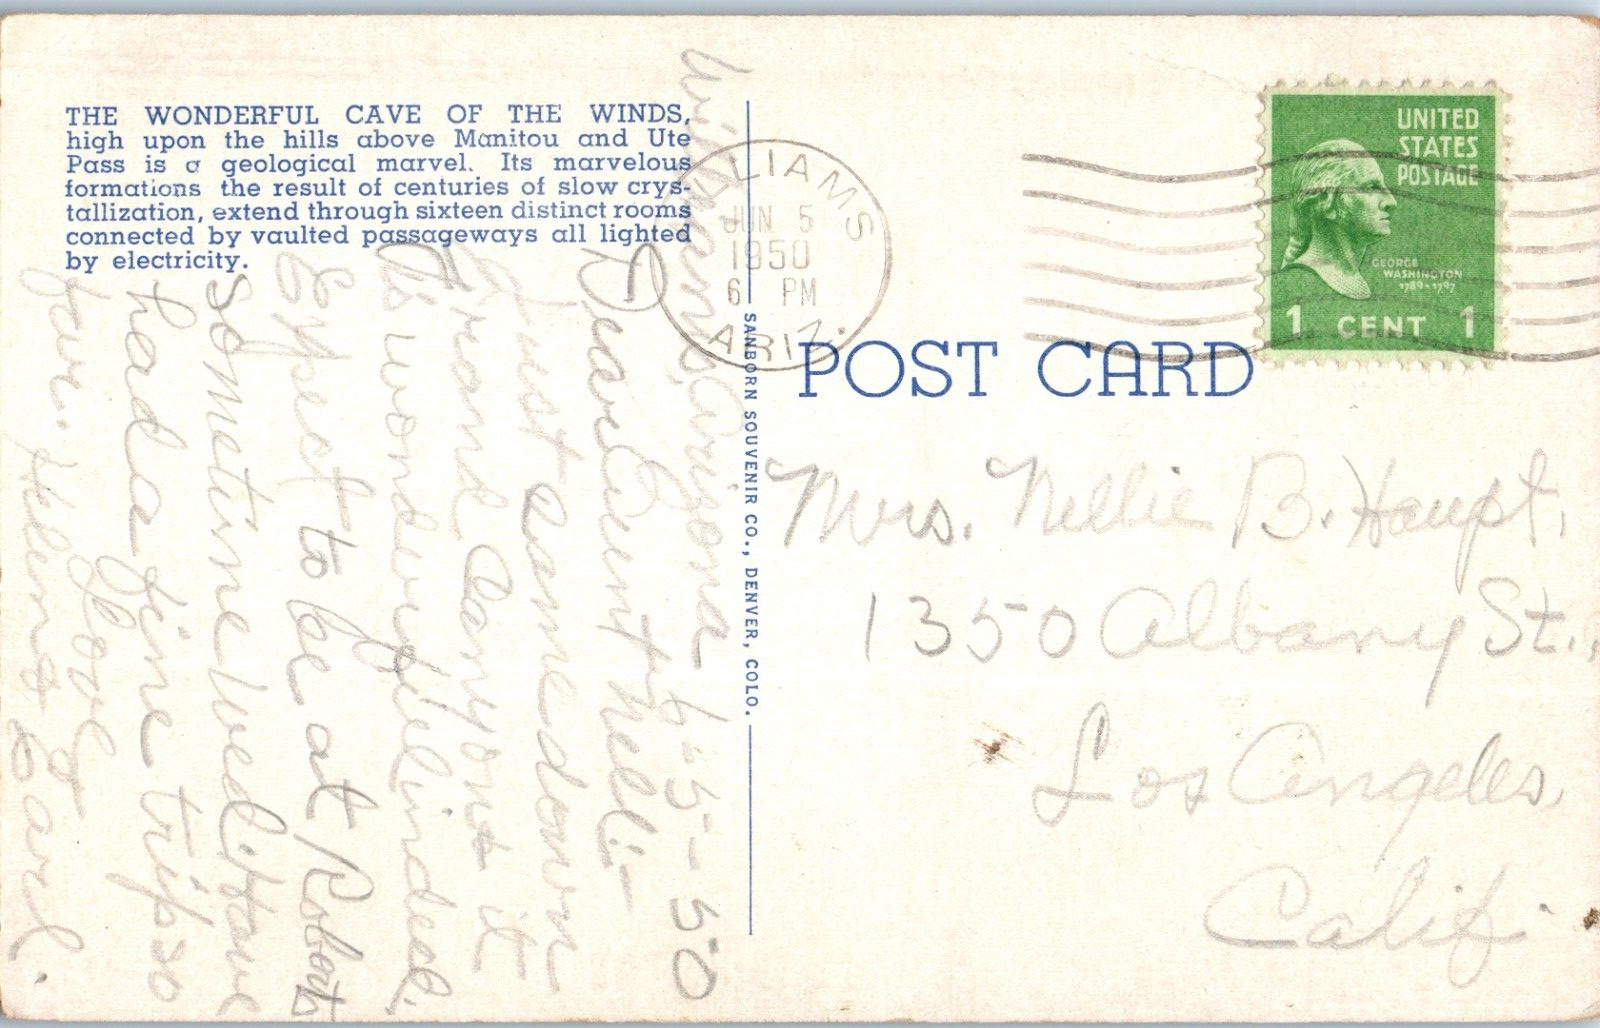 THE WONDERFUL CAVE OF THE WINDS,
high upon the hills above Manitou and Ute
Pass is a geological marvel. Its marvelous
formations the result of centuries of slow crys-
tallization, extend through sixteen distinct rooms
connected by vaulted passageways all lighted
by electricity.
Williams, Arizona 6-5-50
Dear Aunt Nell:-
Just came down
Grand Canyon & it
is wonderful indeed.
Expect to be at Roberts
sometime Wed. Have
had a fine trip so
far. Love
Helen & Earl.
SANBORN SOUVENIR CO., DENVER, COLO.
WILLIAMS
JUN 5
1950
6 PM
ARIZ.
UNITED
STATES
POSTAGE
GEORGE
WASHINGTON
1789-1797
1 CENT 1
POST CARD
Mrs. Nellie B. Haupt,
1350 Albany St.,
Los Angeles,
Calif.